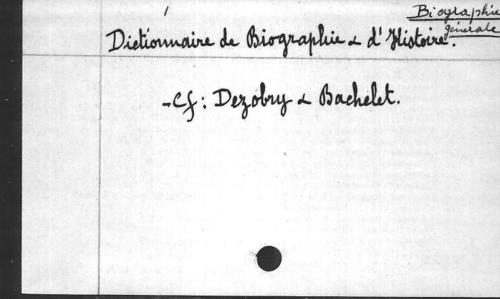 Biographie
générale
Dictionnaire de Biographie & d'Histoire.
-Cf: Dezobry & Bachelet.